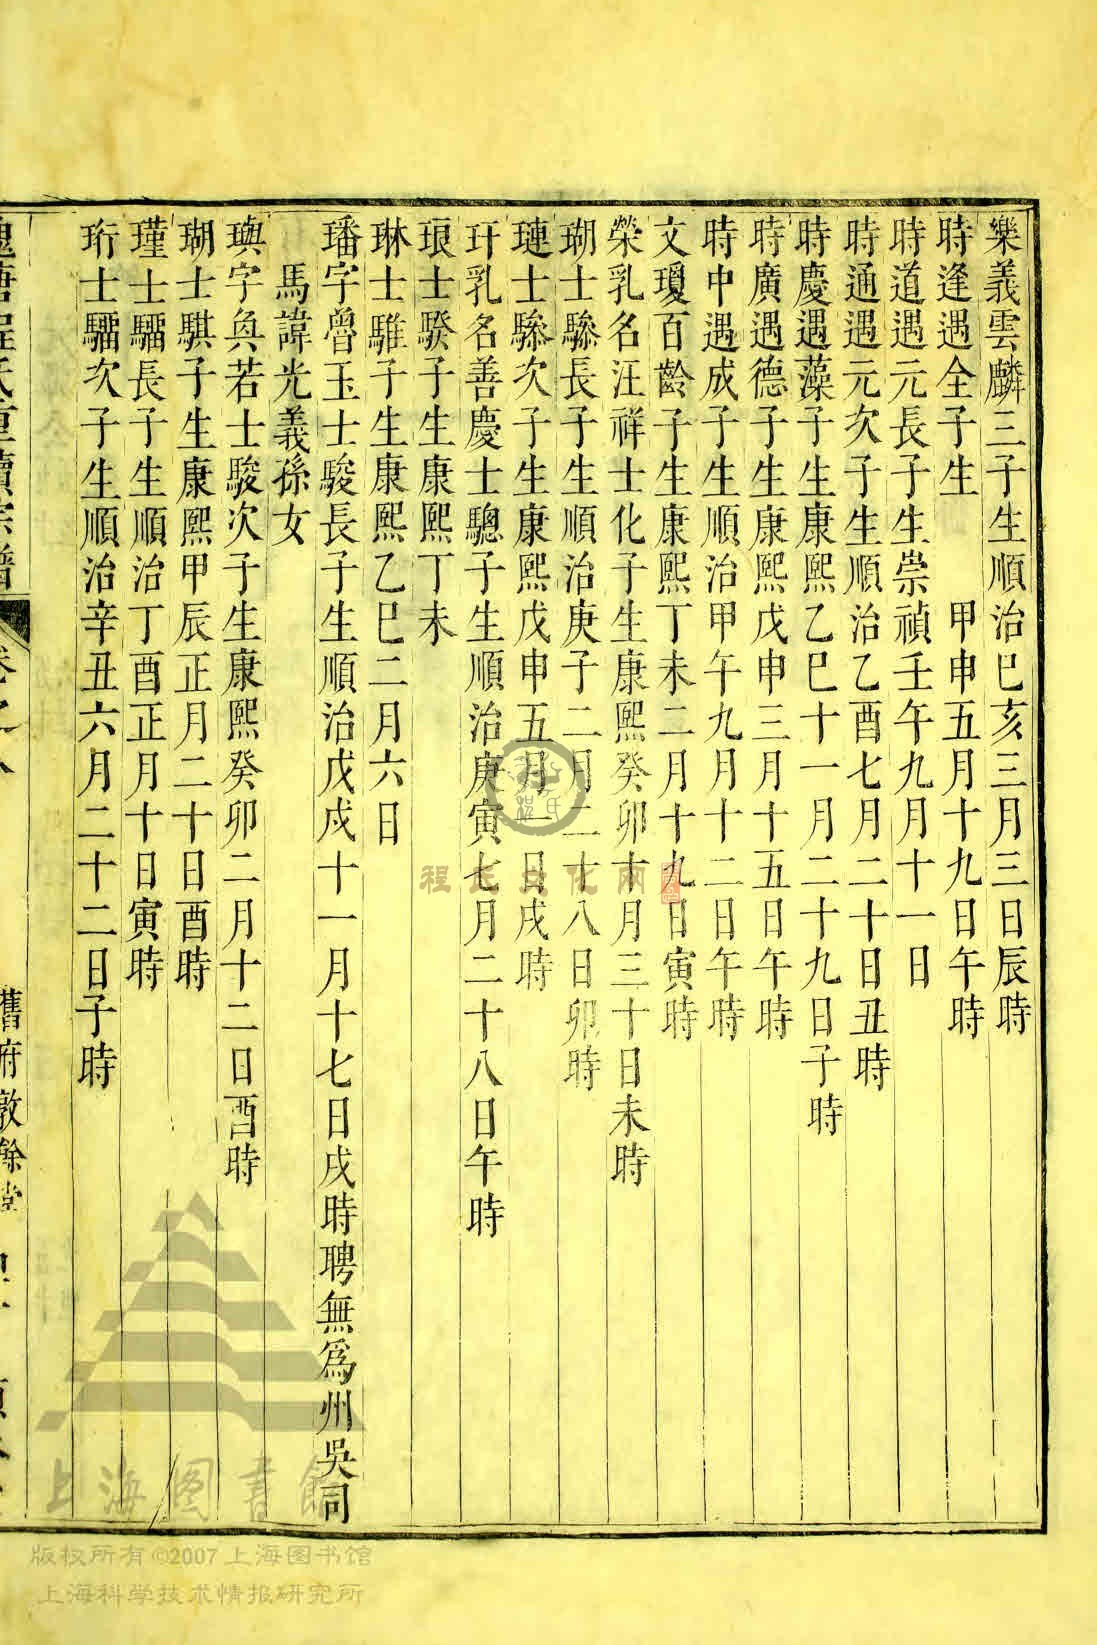 樂義雲麟三子生順治已亥三月三日辰時
時逢遇全子生　甲申五月十九日午時
時道遇元長子生崇禎壬午九月十一日
時通遇元次子生順治乙酉七月二十日丑時
時慶遇藻子生康熙乙巳十一月二十九日子時
時廣遇德子生康熙戊申三月十五日午時
時中遇成子生順治甲午九月十二日午時
文瓊百齡子生康熙丁未二月十九日寅時
榮乳名汪祥士化子生康熙癸卯十月三十日未時
瑚士驂長子生順治庚子二月二十八日卯時
璉士驂次子生康熙戊申五月一日戌時
玕乳名善慶士驄子生順治庚寅七月二十八日午時
琅士騤子生康熙丁未
琳士騅子生康熙乙巳二月六日
璠字魯玉士駿長子生順治戊戌十一月十七日戌時聘無爲州吳司
馬諱光義孫女
璵字奐若士駿次子生康熙癸卯二月十二日酉時
瑚士騏子生康熙甲辰正月二十日酉時
瑾士騮長子生順治丁酉正月十日寅時
珩士騮次子生順治辛丑六月二十二日子時
程氏重續宗譜　卷之八　舊府敦餘堂
程氏文化网
上海图书馆
版权所有©2007上海图书馆
上海科学技术情报研究所